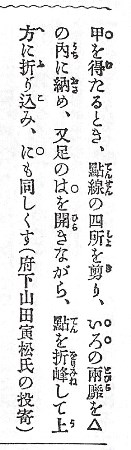 甲を得たるとき、點線の四所を剪り、いろの兩脈を△
の內に納め、又足のはを開きながら、點を折峰して上
方に折り込み、にも同しくす(府下山田寅松氏の投寄)